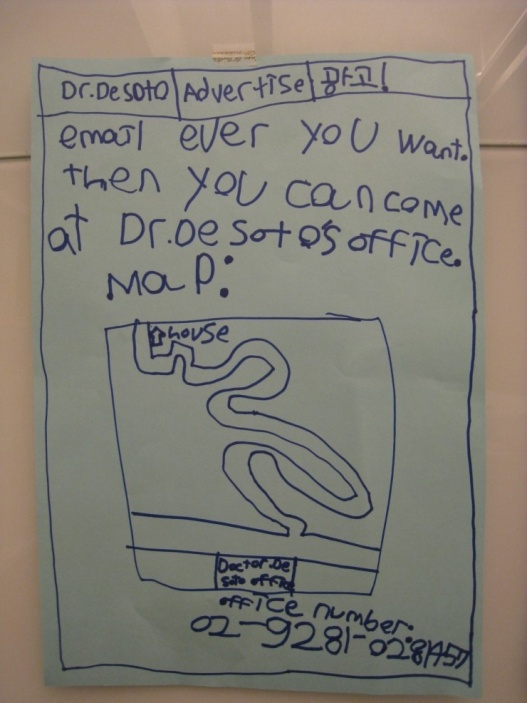 Dr.DeSoto Advertise 광고!
email ever you want.
then you can come
at Dr.De Soto's office.
Map:
house
Doctor.De
Soto office
office number.
02-9281-